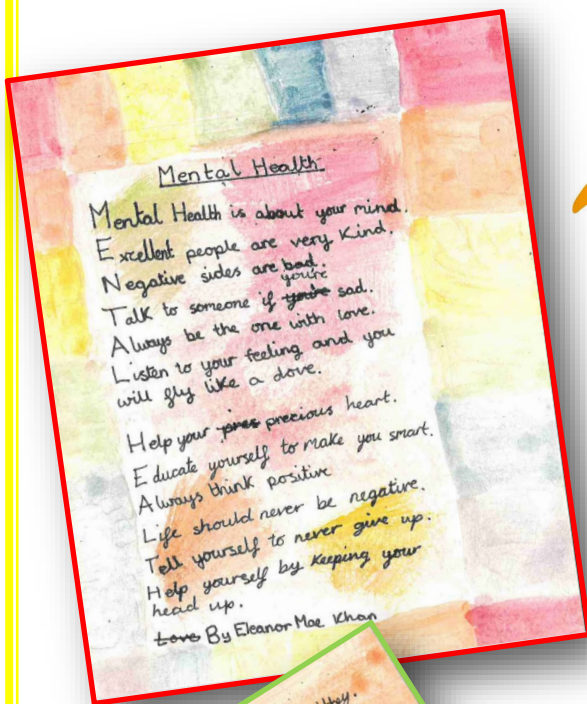 Mental Health
Mental Health is about your mind.
Excellent people are very Kind.
Negative sides are bad.
you're
Talk to someone if you're sad.
Always be the one with love.
Listen to your feeling and you
will fly like a dove.
Help your pres precious heart.
Educate yourself to make you smart.
Always think positive
Life should never be negative.
Tell yourself to never give up.
Help yourself by keeping your
head up.
Love By Eleanor Mae Khan